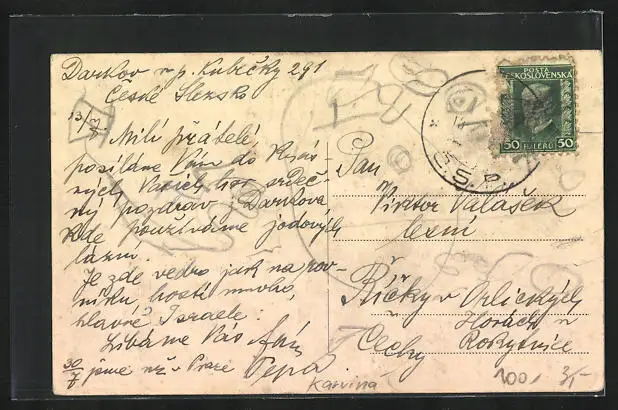 Darkov u p. Kubičky 291
České Slezsko
Milí přátelé,
posíláme Vám do
Vašich hor srdeč-
ný pozdrav z Darkova
kde používáme jodových
lázní.
Je zde vedro jak na rov-
níku, hostí mnoho,
hlavně Israele.
Líbáme Vás
30/7 jsme už v Praze Pepa
Pan
Viktor Valášek
lesní
Říčky v Orlických
Horách u
Rokytnice
Čechy
POSTA
ČESKOSLOVENSKÁ
50 HALÉŘŮ 50
Karvina
100,- 3,-